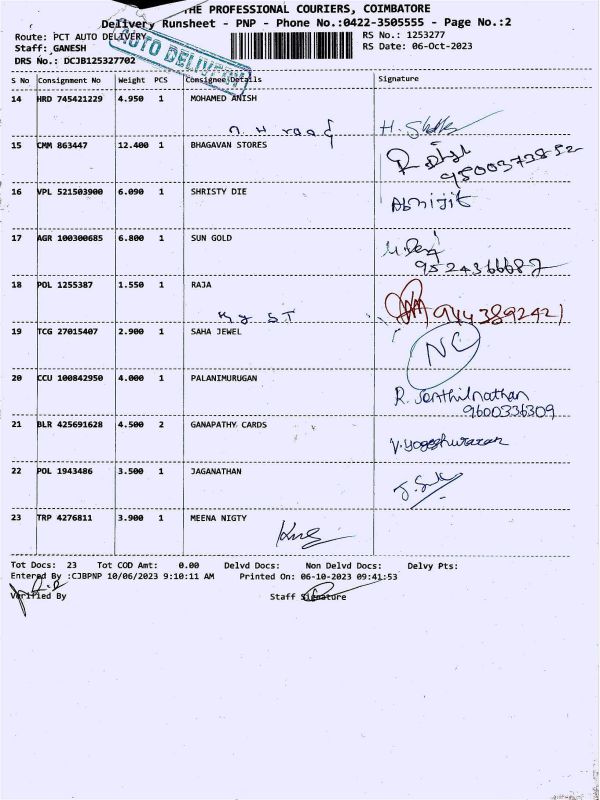 THE PROFESSIONAL COURIERS, COIMBATORE
Delivery Runsheet - PNP - Phone No.:0422-3505555 - Page No.:2
Route: PCT AUTO DELIVERY
RS No.: 1253277
Staff: GANESH
RS Date: 06-Oct-2023
DRS No.: DCJB125327702
AUTO DELIVERY
S No Consignment No Weight PCS Consignee Details Signature
14 HRD 745421229 4.950 1 MOHAMED ANISH
15 CMM 863447 12.400 1 BHAGAVAN STORES
9500373852
16 VPL 521503900 6.090 1 SHRISTY DIE
Abhijit
17 AGR 100300685 6.800 1 SUN GOLD
9524366687
18 POL 1255387 1.550 1 RAJA
9443892421
19 TCG 27015407 2.900 1 SAHA JEWEL
NC
20 CCU 100842950 4.000 1 PALANIMURUGAN
R. Senthilnathan
9600336309
21 BLR 425691628 4.500 2 GANAPATHY CARDS
V. Yogeshwaran
22 POL 1943486 3.500 1 JAGANATHAN
23 TRP 4276811 3.900 1 MEENA NIGTY
Tot Docs: 23 Tot COD Amt: 0.00 Delvd Docs: Non Delvd Docs: Delvy Pts:
Entered By :CJBPNP 10/06/2023 9:10:11 AM Printed On: 06-10-2023 09:41:53
Verified By Staff Signature